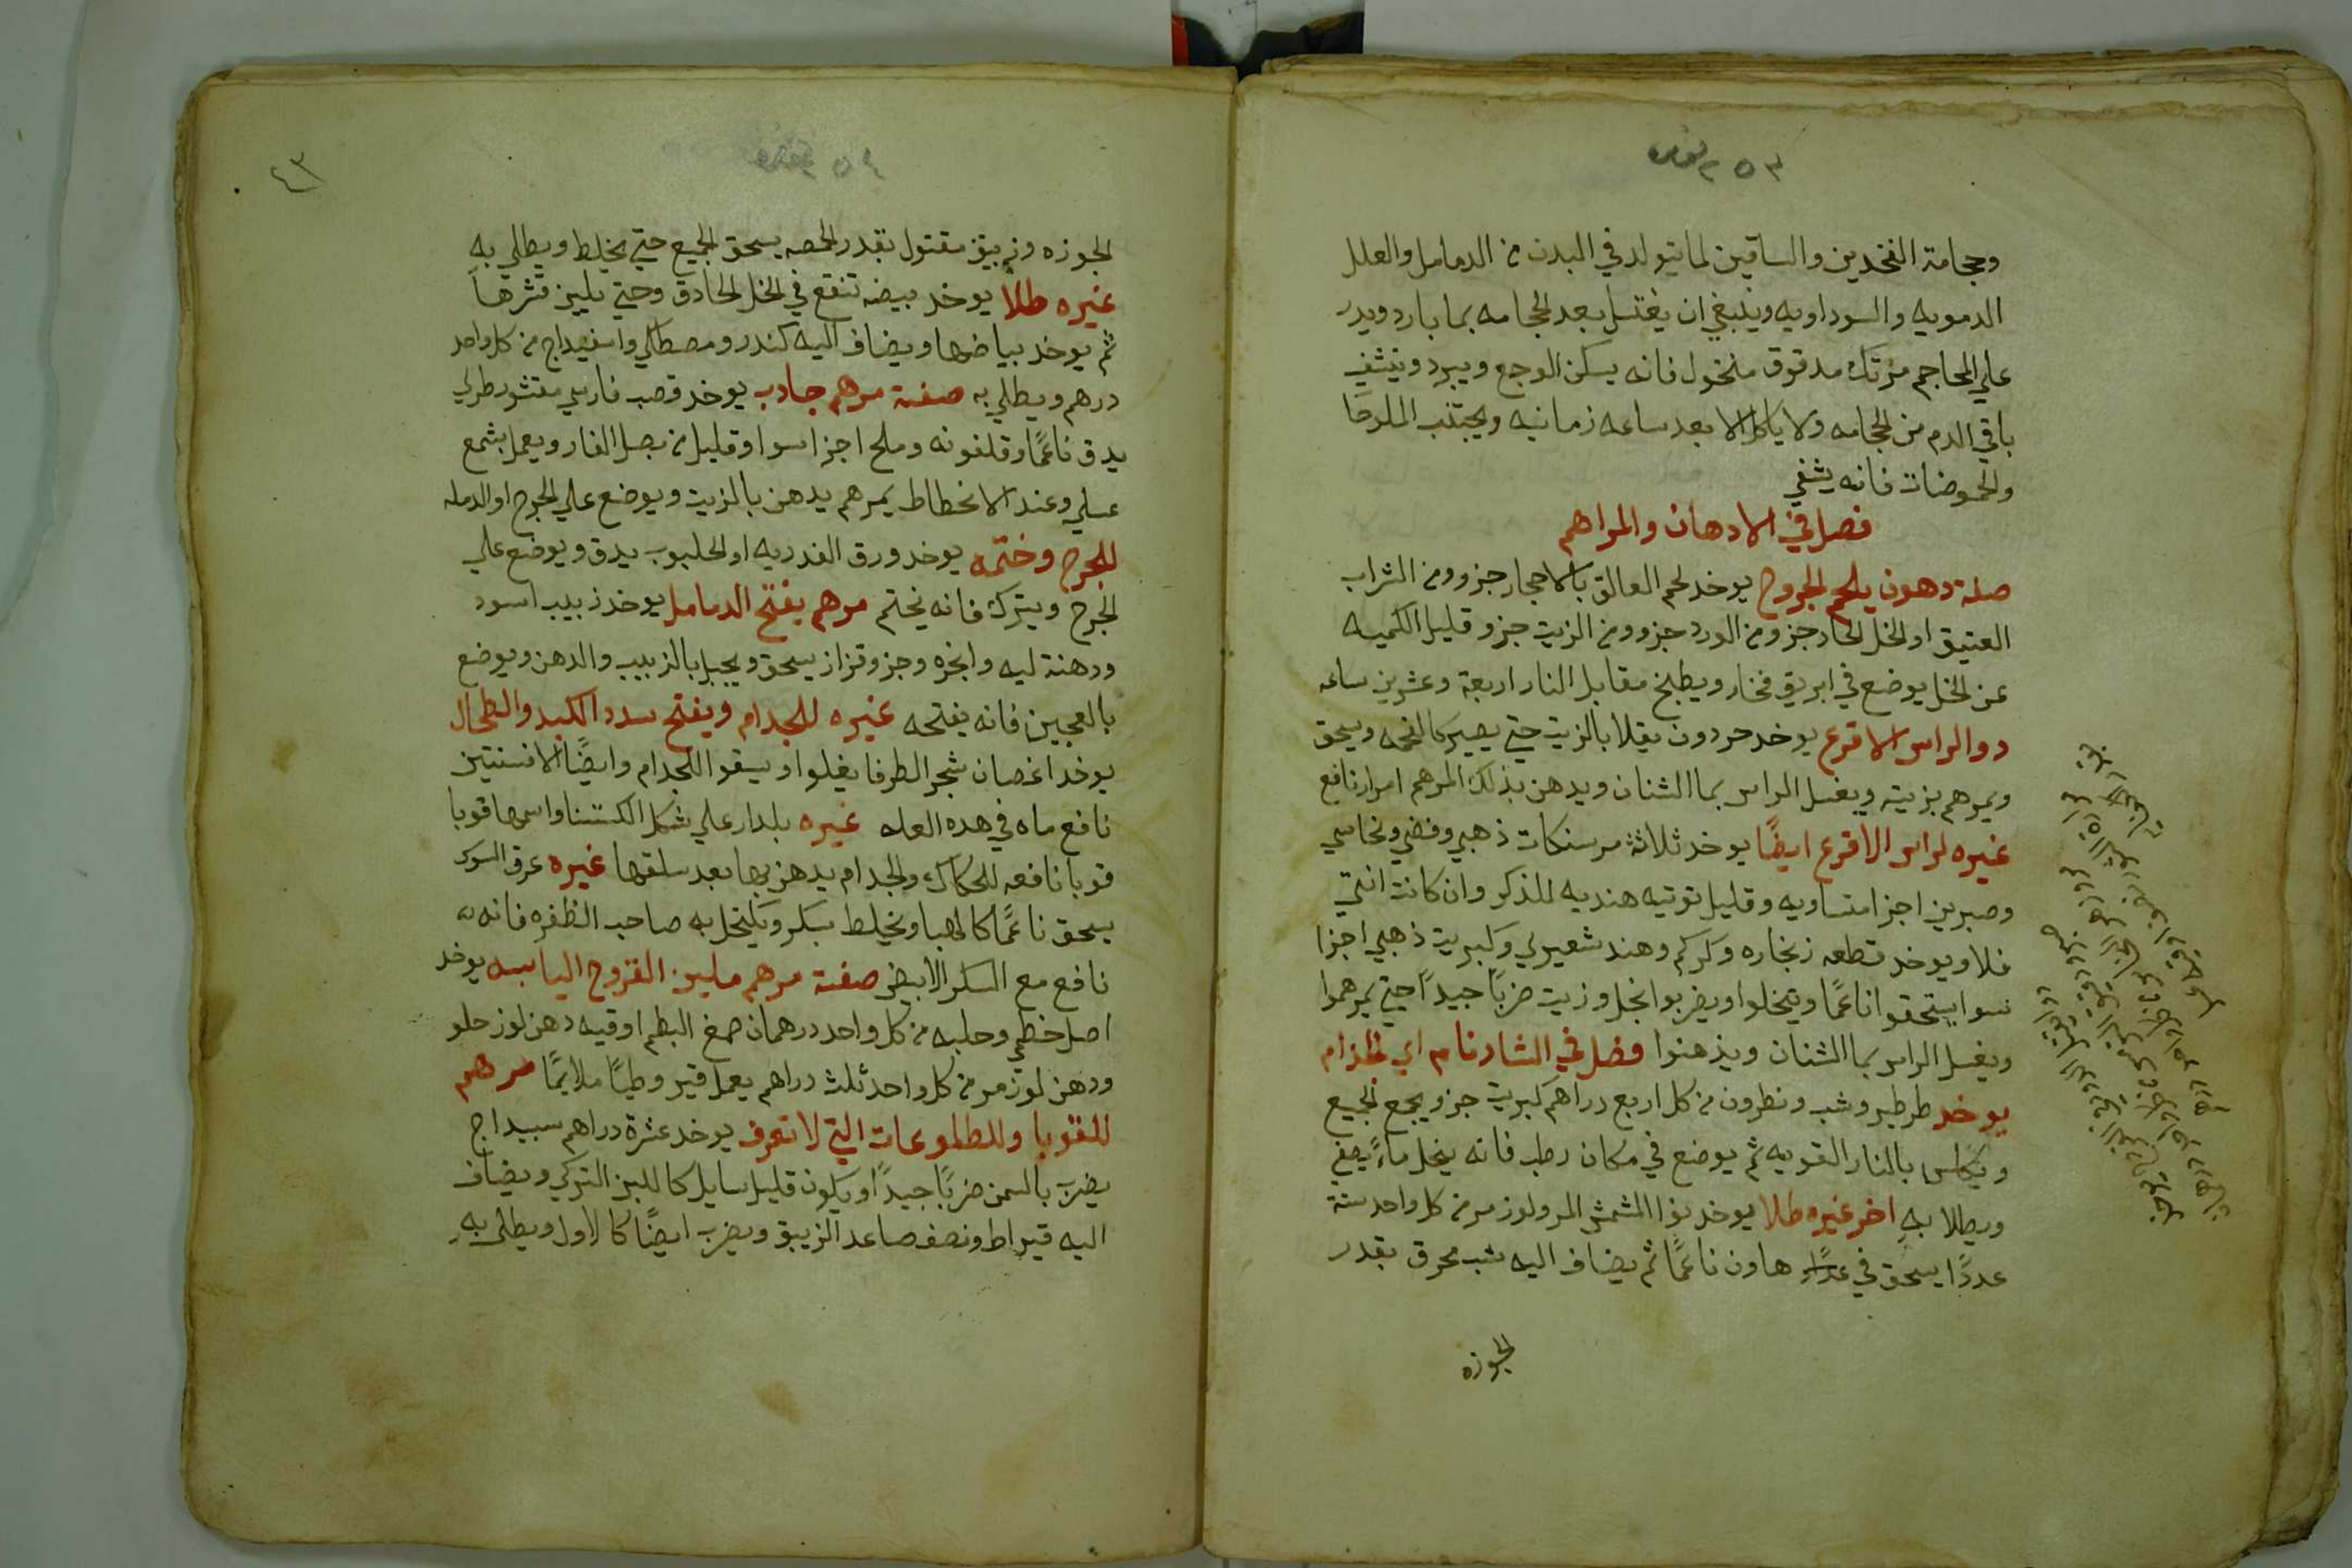 وحجامة الفخدين والساقين لما يتولد في البدن من الدمامل والعلل
الدمويه والسوداويه وينبغي ان يغتسل بعد الحجامه بما بارد ويدر
علي المحاجم مرتك مدقوق منخول فانه يسكن الوجع ويبرد وينشف
باقي الدم من الحجامه ولا ياكل الا بعد ساعه زمانيه ويجتنب الملوحا
والحموضات فانه يشفي
فصل في الادهان والمراهم
صفة دهون يلحم الجروح يوخد لحم العالق بالاحجار جزو ومن الشراب
العتيق او الخل الحاد جزو من الورد جزو ومن الزيت جزو وقليل الكميه
عن الخل يوضع في ابريق فخار ويطبخ مقابل النار اربعة وعشرين ساعه
دوا الراس الاقرع يوخد حردون يقلا بالزيت حتي يصير كالفحمه ويسحق
ويمرهم بزيته ويغسل الراس بما الشنان ويدهن بذلك المرهم امرار نافع
غيره لراس الاقرع ايضًا يوخد ثلاثة مرسنكات ذهبي وفضي ونحاسي
وصبرين اجزا متساويه وقليل توتيه هنديه للذكر وان كانت انتي
فلا ويوخد قطعه زنجاره وكركم وهند شعيري وكبريت ذهبي اجزا
سوا يستحقوا ناعمًا ويتخلوا ويضربوا بخل وزيت ضربًا جيدًا حتي يمرهموا
ويغسل الراس بما الشنان ويدهنوا فصل في الشادنام اي
يوخد طرطير وشب ونطرون من كل اربع دراهم كبريت جزو يجمع الجميع
ويكلس بالنار القويه ثم يوضع في مكان رطب فانه ينحل ماءً يصفي
ويطلا به اخر غيره طلا يوخد نوا المشمش المر ولوز مر من كل واحد ستة
عددًا يسحق في هاون ناعمًا ثم يضاف اليه شب محرق بقدر
الجوزه
الجوزه وزيبق مقتول بقدر الحمصه يسحق الجميع حتي يختلط ويطلي به
غيره طلا يوخد بيضه تنقع في الخل الحادق وحتي يلين قشرها
ثم يوخد بياضها ويضاف اليه كندر ومصطكي واسفيداج من كل واحد
درهم ويطلي به صفة مرهم جادب يوخد قصب فارسي مقشور طري
يدق ناعمًا وقلفونه وملح اجزا سوا وقليل من بصل الفار ويعمل بشمع
عسلي وعند الانحطاط يمرهم يدهن بالزيت ويوضع علي الجرح او الدمله
للجرح وختمه يوخد ورق الغدريه او الحلبوب يدق ويوضع علي
الجرح ويترك فانه يختم مرهم يفتح الدمامل يوخد زبيب اسود
ودهنة ليه وانجزه وجزو قزاز يسحق ويجبل بالزبيب والدهن ويوضع
بالعجين فانه يفتحه غيره للجدام ويفتح سدد الكبد والطحال
يوخد اغصان شجر الطرفا يغلوا ويسقوا للجدام وايضًا الافسنتين
نافع ماه في هده العله غيره بلدار علي شكل الكستنا واسمها قوبا
قوبا نافعه للحكاك والجدام يدهن بها بعد سلقها غيره عرق السوك
يسحق ناعمًا كالهبا ويخلط بسكر ويكتحل به صاحب الظفره فانه
نافع مع السكر الابيض صفة مرهم ملين القروح اليابسه يوخد
اصل خطمي وحلبه من كل واحد درهمان صمغ البطم اوقيه دهن لوز حلو
ودهن لوز مر من كل واحد ثلث دراهم يعمل قيروطيًا ملايمًا مرهم
للقوبا وللطلوعات التي لا تعرف يوخد عشرة دراهم سبيداج
يضرب بالسمن ضربًا جيدًا ويكون قليل سايل كاللبن التركي ويضاف
اليه قيراط ونصف صاعد الزيبق ويضرب ايضًا كالاول ويطلي به